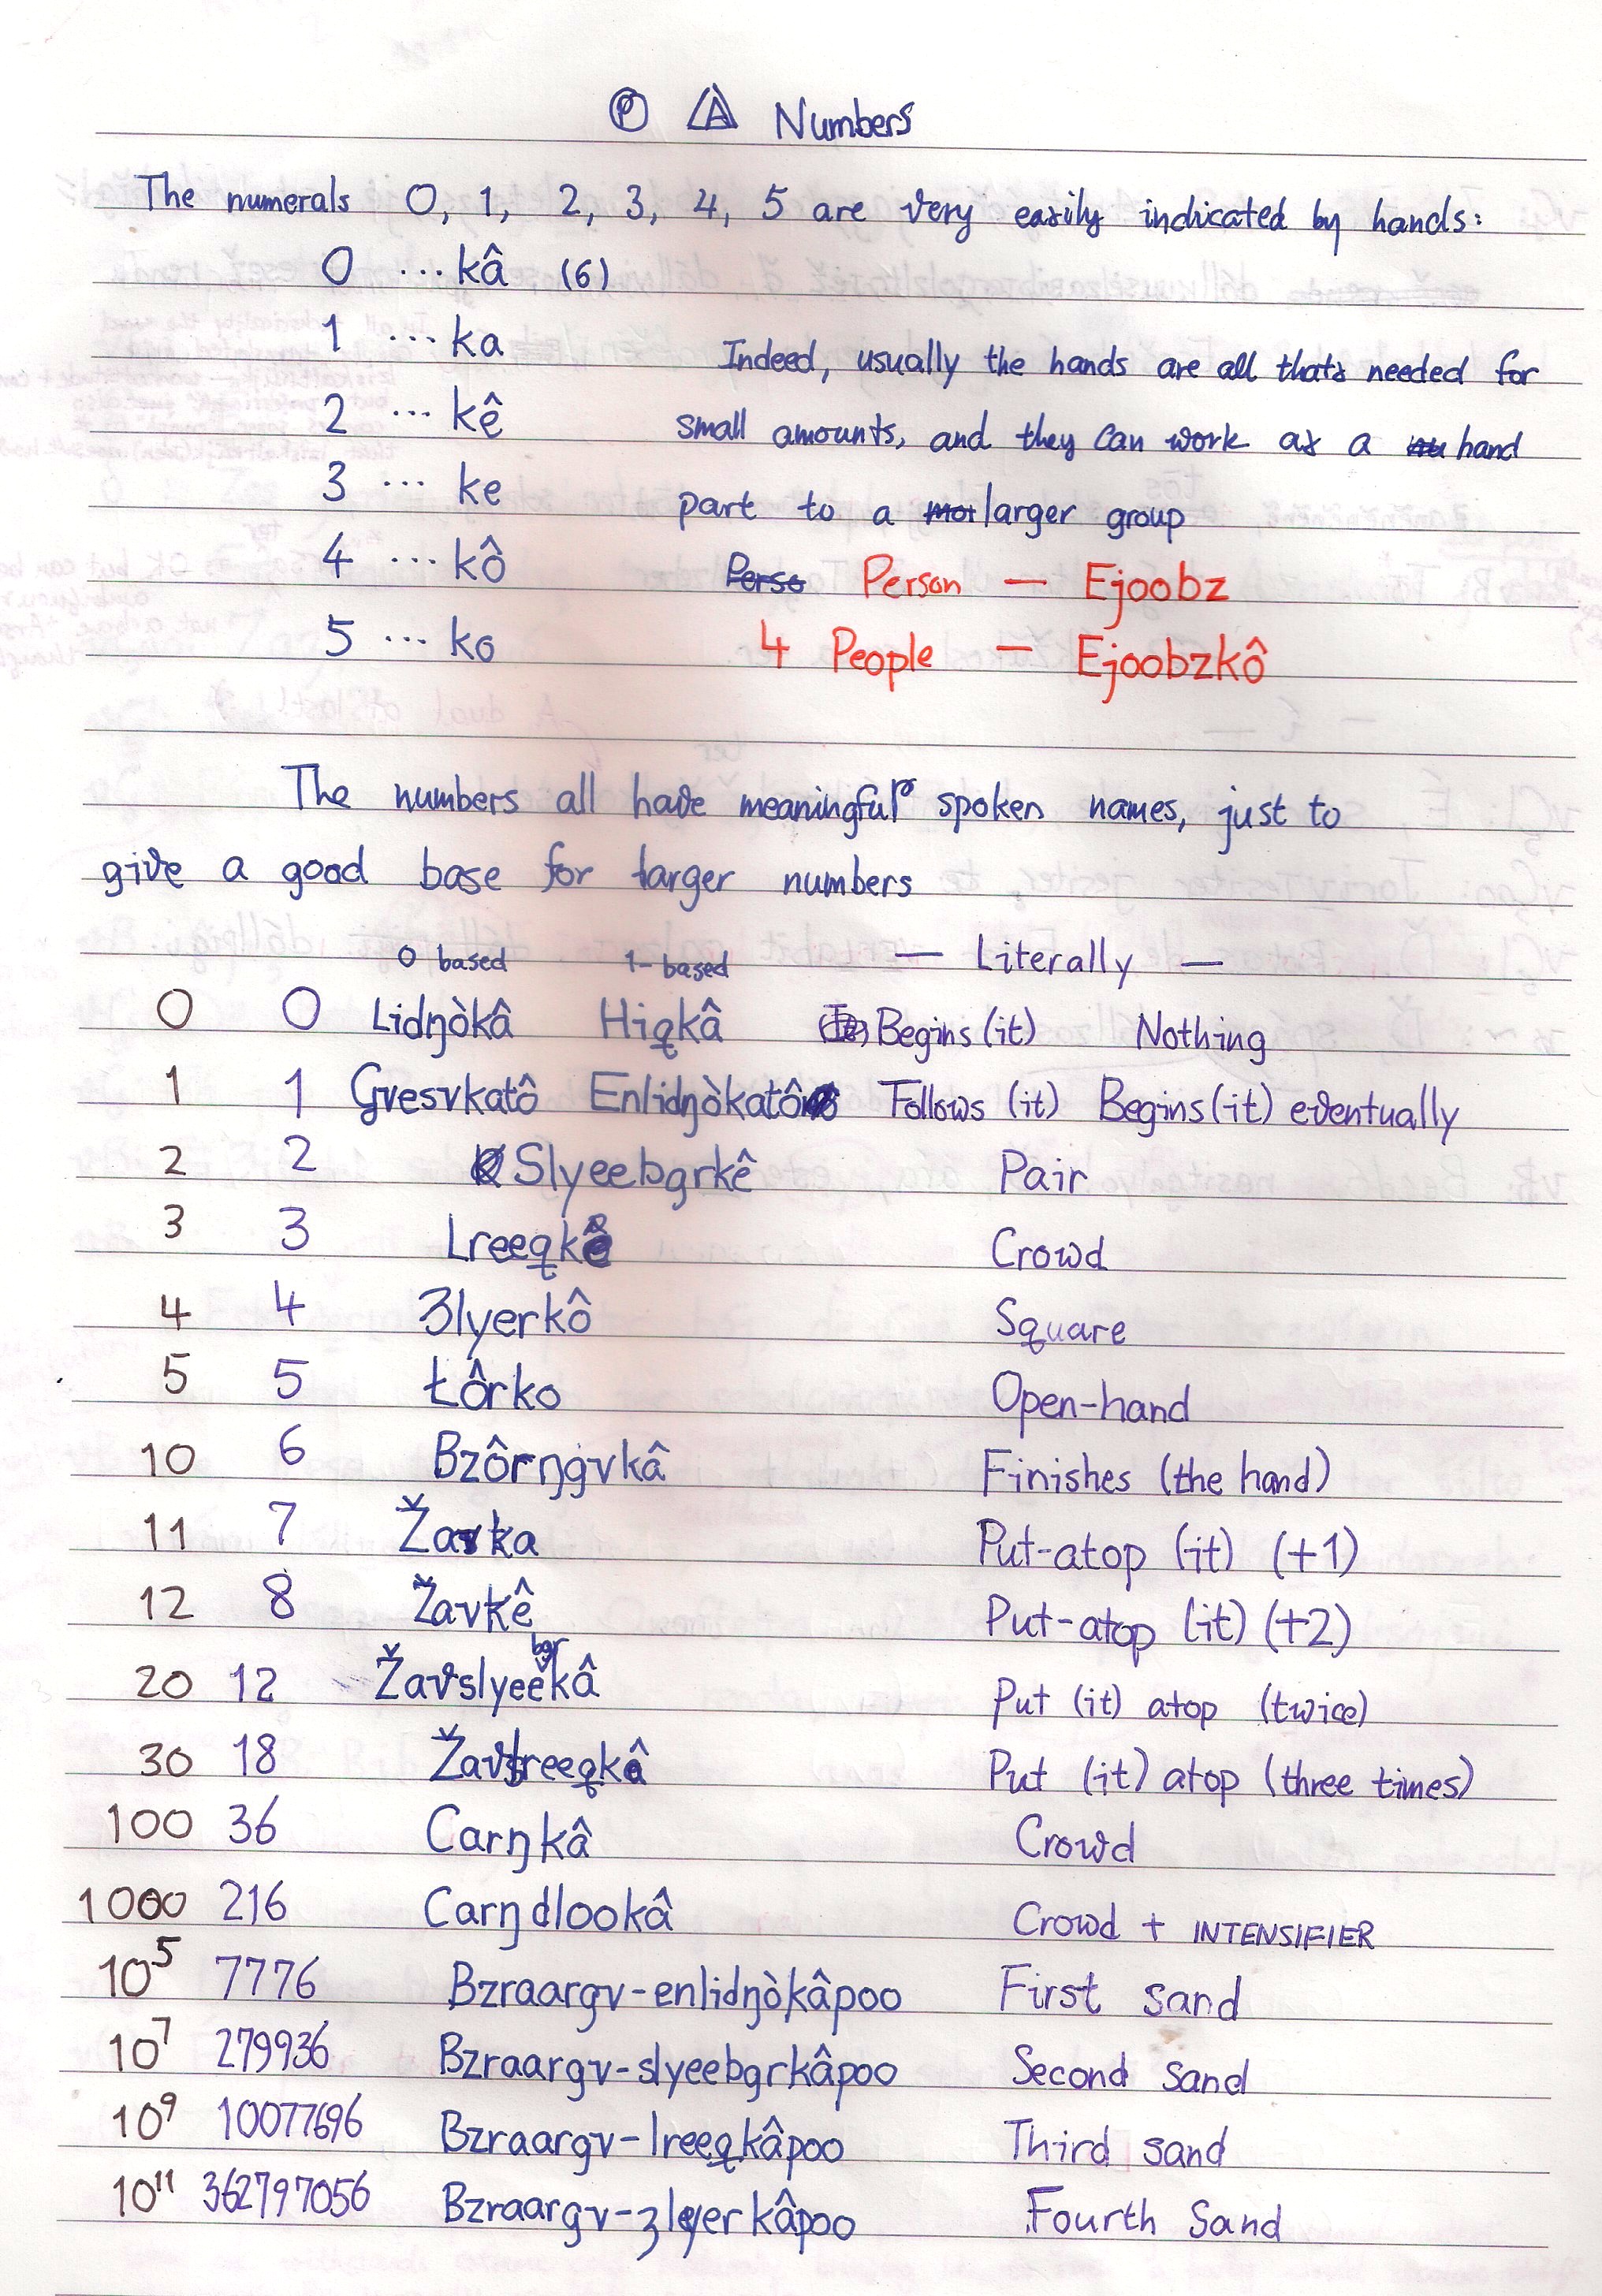 Ⓟ A Numbers
The numerals 0, 1, 2, 3, 4, 5 are very easily indicated by hands:
0 ... kâ (6)
1 ... ka
Indeed, usually the hands are all thats needed for
2 ... kê
small amounts, and they can work as a hand
3 ... ke
part to a larger group
4 ... kô
Person — Ejoobz
5 ... ko
4 People — Ejoobzkô
The numbers all have meaningful spoken names, just to
give a good base for larger numbers
0 based 1-based — Literally —
0 0 Lidŋòkâ Hiqkâ Begins (it) Nothing
1 1 Gvesvkatô Enlidŋòkatô Follows (it) Begins (it) eventually
2 2 Slyeebgrkê Pair
3 3 Crowd
4 4 Ʒlyerkô Square
5 5 Łôrko Open-hand
10 6 Bzôrŋgvkâ Finishes (the hand)
11 7 Žavka Put-atop (it) (+1)
12 8 Žavkê Put-atop (it) (+2)
20 12 Žavslyeebgrkâ Put (it) atop (twice)
30 18 Put (it) atop (three times)
100 36 Carŋkâ Crowd
1000 216 Carŋdlookâ Crowd + INTENSIFIER
10⁵ 7776 Bzraargv-enlidŋòkâpoo First sand
10⁷ 279936 Bzraargv-slyeebgrkâpoo Second sand
10⁹ 10077696 Bzraargv-lreeqkâpoo Third sand
10¹¹ 362797056 Bzraargv-ʒlyerkâpoo Fourth Sand